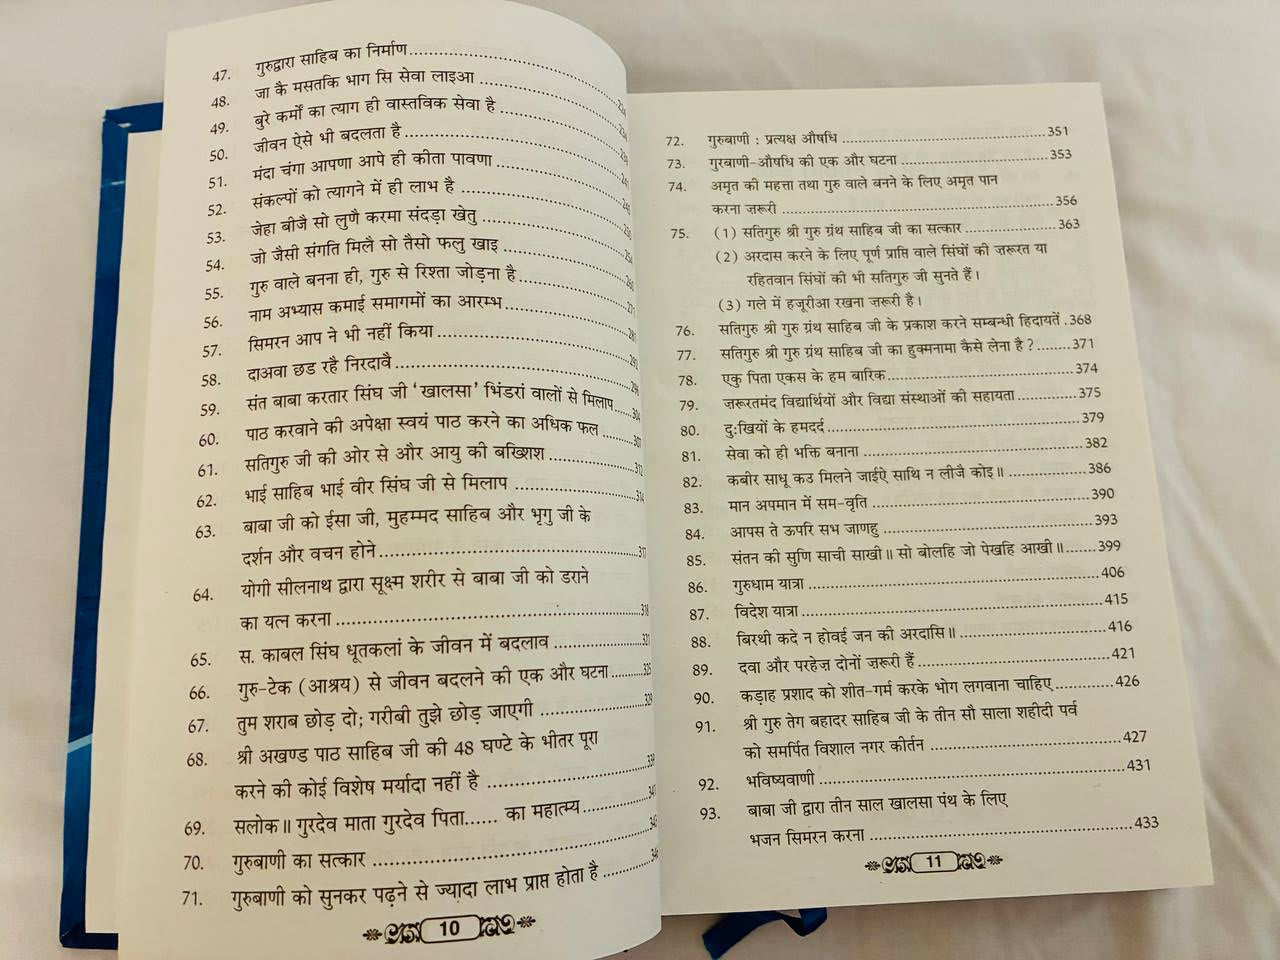 47. गुरुद्वारा साहिब का निर्माण
48. जा कै मसतकि भाग सि सेवा लाइआ
49. बुरे कर्मों का त्याग ही वास्तविक सेवा है
50. जीवन ऐसे भी बदलता है
51. मंदा चंगा आपणा आपे ही कीता पावणा
52. संकल्पों को त्यागने में ही लाभ है
53. जेहा बीजै सो लुणै करमा संदड़ा खेतु
54. जो जैसी संगति मिलै सो तैसो फलु खाइ
55. गुरु वाले बनना ही, गुरु से रिश्ता जोड़ना है
56. नाम अभ्यास कमाई समागमों का आरम्भ
57. सिमरन आप ने भी नहीं किया
58. दाअवा छड रहै निरदावै
59. संत बाबा करतार सिंघ जी ‘खालसा’ भिंडरां वालों से मिलाप
60. पाठ करवाने की अपेक्षा स्वयं पाठ करने का अधिक फल
61. सतिगुरु जी की ओर से और आयु की बख्शिश
62. भाई साहिब भाई वीर सिंघ जी से मिलाप ......314
63. बाबा जी को ईसा जी, मुहम्मद साहिब और भृगु जी के
दर्शन और वचन होने ......317
64. योगी सीलनाथ द्वारा सूक्ष्म शरीर से बाबा जी को डराने
का यत्न करना ......318
65. स. काबल सिंघ धूतकलां के जीवन में बदलाव
66. गुरु-टेक (आश्रय) से जीवन बदलने की एक और घटना ......325
67. तुम शराब छोड़ दो; गरीबी तुझे छोड़ जाएगी ......329
68. श्री अखण्ड पाठ साहिब जी की 48 घण्टे के भीतर पूरा
करने की कोई विशेष मर्यादा नहीं है
69. सलोक॥ गुरदेव माता गुरदेव पिता...... का महात्म्य
70. गुरुबाणी का सत्कार
71. गुरुबाणी को सुनकर पढ़ने से ज्यादा लाभ प्राप्त होता है
10
72. गुरुबाणी : प्रत्यक्ष औषधि ......351
73. गुरबाणी-औषधि की एक और घटना ......353
74. अमृत की महत्ता तथा गुरु वाले बनने के लिए अमृत पान
करना ज़रूरी ......356
75. (1) सतिगुरु श्री गुरु ग्रंथ साहिब जी का सत्कार ......363
(2) अरदास करने के लिए पूर्ण प्राप्ति वाले सिंघों की ज़रूरत या
रहितवान सिंघों की भी सतिगुरु जी सुनते हैं।
(3) गले में हजूरीआ रखना ज़रूरी है।
76. सतिगुरु श्री गुरु ग्रंथ साहिब जी के प्रकाश करने सम्बन्धी हिदायतें .368
77. सतिगुरु श्री गुरु ग्रंथ साहिब जी का हुक्मनामा कैसे लेना है? ......371
78. एकु पिता एकस के हम बारिक ......374
79. ज़रूरतमंद विद्यार्थियों और विद्या संस्थाओं की सहायता ......375
80. दुःखियों के हमदर्द ......379
81. सेवा को ही भक्ति बनाना ......382
82. कबीर साधू कउ मिलने जाईऐ साथि न लीजै कोइ॥ ......386
83. मान अपमान में सम-वृति ......390
84. आपस ते ऊपरि सभ जाणहु ......393
85. संतन की सुणि साची साखी॥ सो बोलहि जो पेखहि आखी॥ ......399
86. गुरुधाम यात्रा ......406
87. विदेश यात्रा ......415
88. बिरथी कदे न होवई जन की अरदासि॥ ......416
89. दवा और परहेज़ दोनों ज़रूरी हैं ......421
90. कड़ाह प्रशाद को शीत-गर्म करके भोग लगवाना चाहिए ......426
91. श्री गुरु तेग बहादर साहिब जी के तीन सौ साला शहीदी पर्व
को समर्पित विशाल नगर कीर्तन ......427
92. भविष्यवाणी ......431
93. बाबा जी द्वारा तीन साल खालसा पंथ के लिए
भजन सिमरन करना ......433
11